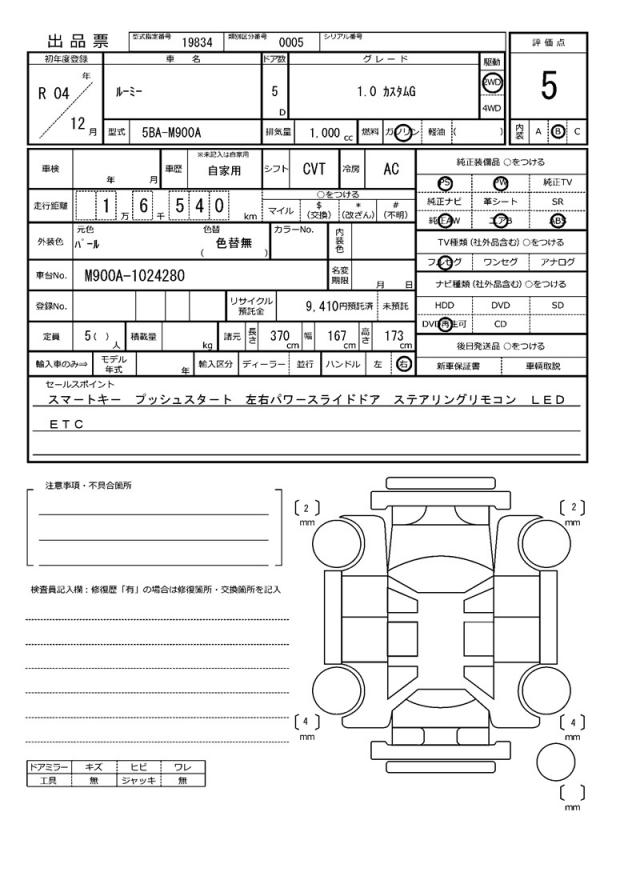 出品票 型式指定番号 19834 類別区分番号 0005 シリアル番号
評価点
初年度登録 車名 ドア数 グレード 駆動
R 04 年 ルーミー 5 D 1.0 カスタムG 2WD 5
4WD
12月 型式 5BA-M900A 排気量 1,000 cc 燃料 ガソリン 軽油 ( ) 内装 A B C
車検 年 月 車歴 ※未記入は自家用 自家用 シフト CVT 冷房 AC 純正装備品 ○をつける
PS PW 純正TV
走行距離 1万 6千 540 km ○をつける 純正ナビ 革シート SR
マイル $(交換) *(改ざん) #(不明) 純正AW エアB ABS
外装色 元色 パール 色替 色替無 ( ) カラーNo. 内装色 TV種類 (社外品含む) ○をつける
フルセグ ワンセグ アナログ
車台No. M900A-1024280 名変期限 月 日 ナビ種類 (社外品含む) ○をつける
登録No. リサイクル預託金 9,410円預託済 未預託 HDD DVD SD
DVD再生可 CD
定員 5( )人 積載量 kg 諸元 長さ 370 cm 幅 167 cm 高さ 173 cm 後日発送品 ○をつける
輸入車のみ⇒ モデル年式 年 輸入区分 ディーラー 並行 ハンドル 左 右 新車保証書 車輌取説
セールスポイント
スマートキー プッシュスタート 左右パワースライドドア ステアリングリモコン LED
ETC
注意事項・不具合箇所
2 mm
2 mm
検査員記入欄：修復歴「有」の場合は修復箇所・交換箇所を記入
4 mm
4 mm
ドアミラー キズ ヒビ ワレ
工具 無 ジャッキ 無
mm